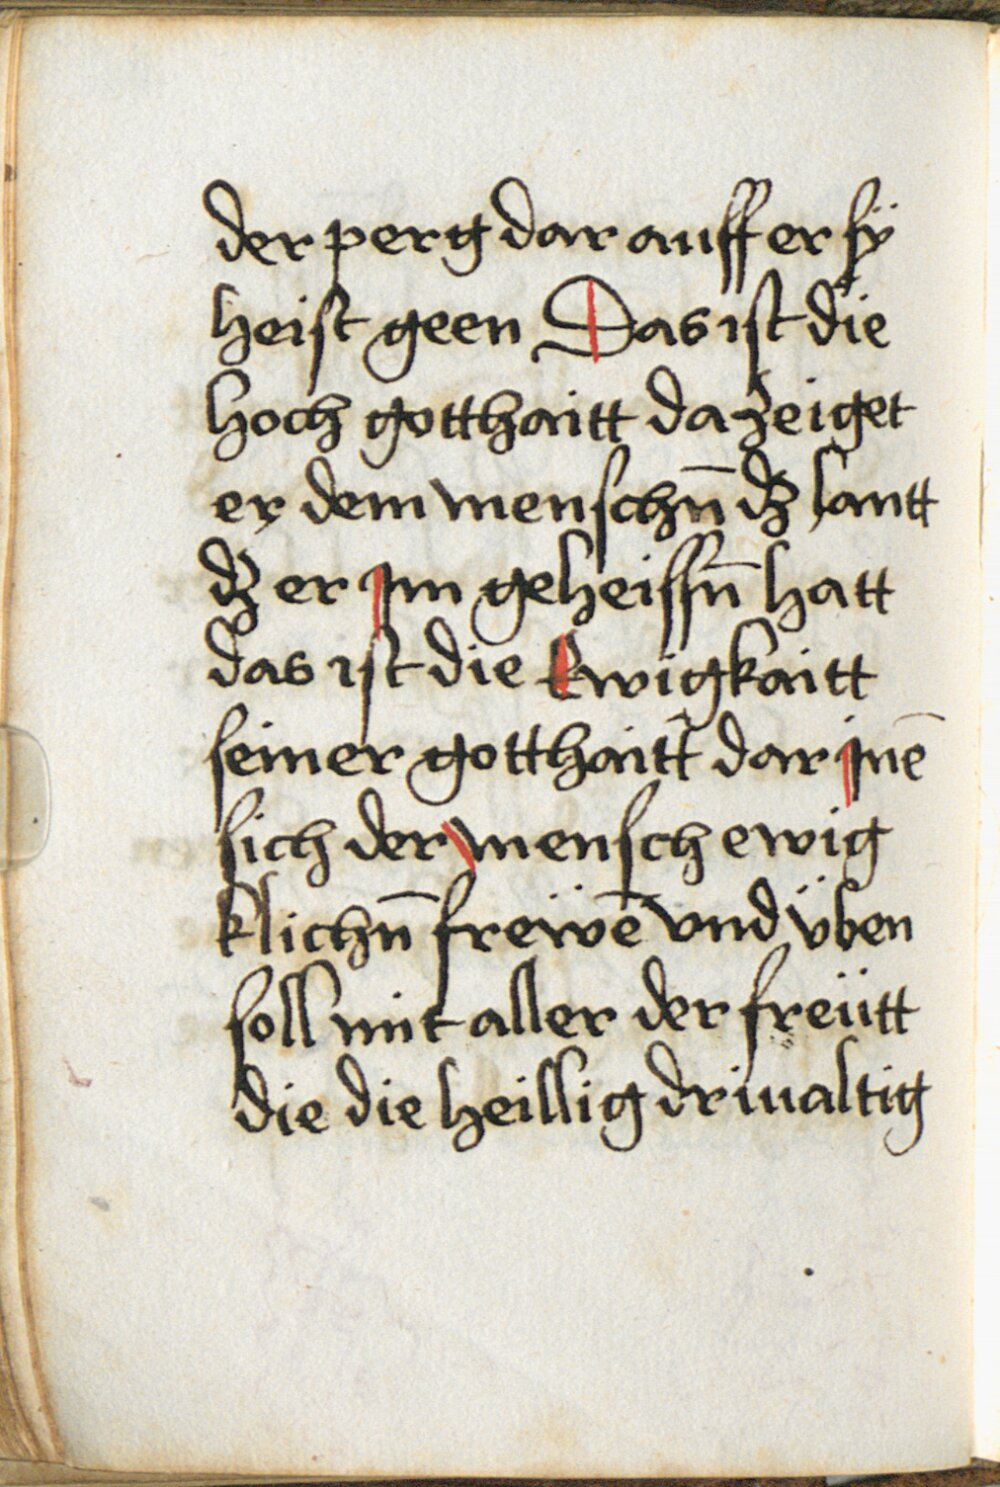 der perg dar auff er sÿ
heist geen Das ist die
hoch gotthaitt da zeiget
er dem menschn̄ dʒ lantt
dʒ er Im geheissn̄ hatt
das ist die Ewigkaitt
seiner gotthaitt dar jnē
sich der mensch ewig
klichn̄ freẅē vnd v̈ben
soll mit aller der freütt
die die heillig driualtig